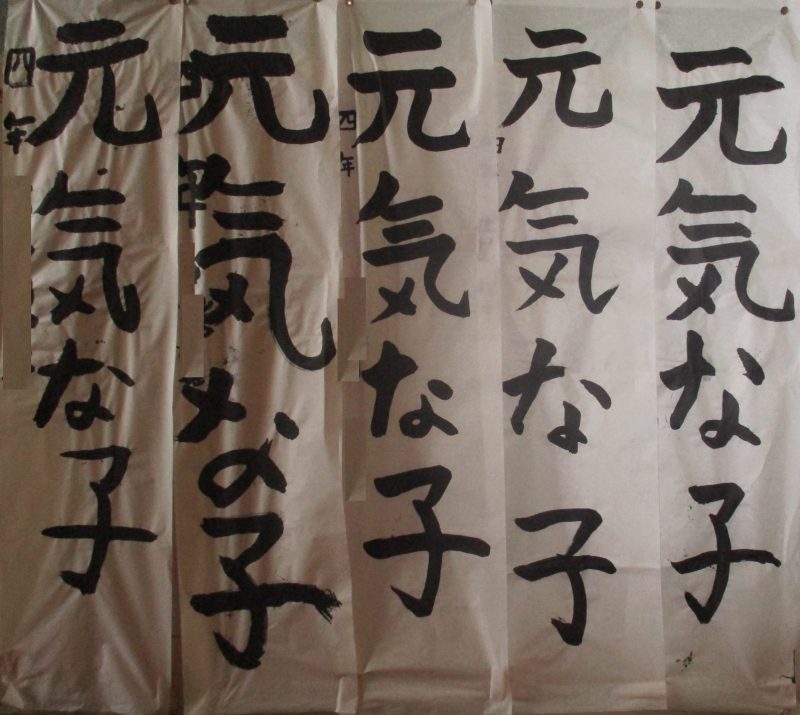 元気な子
元気な子
元気な子
四年
元気な子
年
元気な子
四年